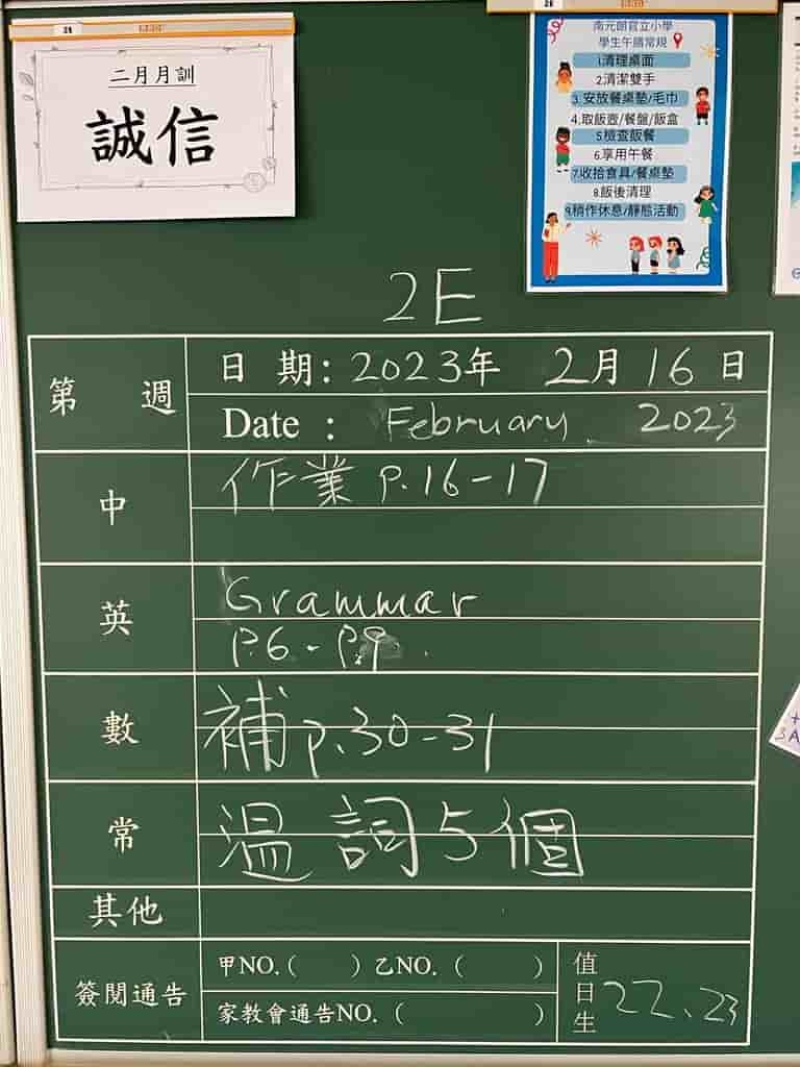 二月月訓
誠信
南元朗官立小學
學生午膳常規
1.清理桌面
2.清潔雙手
3.安放餐桌墊/毛巾
4.取飯壺/餐盤/飯盒
5.檢查飯餐
6.享用午餐
7.收拾食具/餐桌墊
8.飯後清理
9.稍作休息/靜態活動
2E
第 週
日 期：2023年 2月 16 日
Date : February 2023
中
作業 P.16-17
英
Grammar
P.6 - P.9
數
補 p.30-31
常
溫 詞 5個
其他
簽閱通告
甲NO.( ) 乙NO. ( )
家教會通告NO. ( )
值日生 22、23